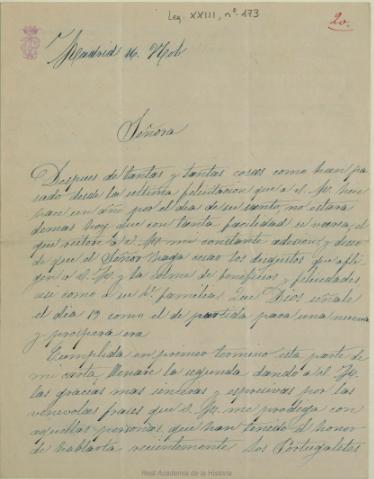 Leg. XXIII, nº 173
20.
Madrid 16 Nob.
Señora
Despues de tantas y tantas cosas como han pa
sado desde la ultima felicitacion que a V. M. hice
hace un año por el dia de su santo, no estara
demas hoy que con tanta facilidad se varia, el
que reitere a V. M. mi constante adesion, y deseo
de que el Señor haga cesar los disgustos que afli
gen a V. M. y la colme de beneficios y felicidades
asi como a su Rl. familia. Que Dios señale
el dia 19 como el de partida para una nueva
y prospera era
Cumplida en primer termino esta parte de
mi carta, llenare la segunda dando a V. M.
las gracias mas sinceras y espresivas por las
venevolas frases que V. M. me prodiga con
aquellas personas, que han tenido el honor
de hablarla recientemente. Los Portugaletes
Real Academia de la Historia